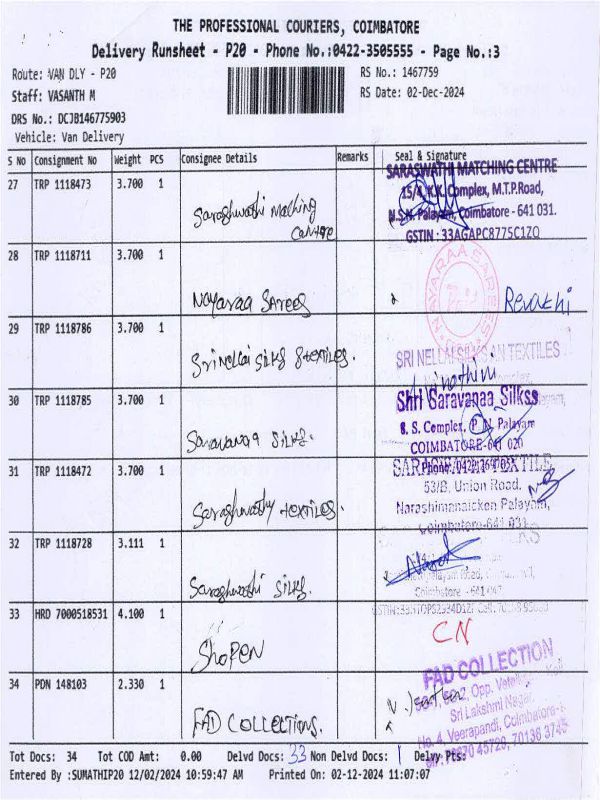 THE PROFESSIONAL COURIERS, COIMBATORE
Delivery Runsheet - P20 - Phone No.:0422-3505555 - Page No.:3
Route: VAN DLY - P20
RS No.: 1467759
Staff: VASANTH M
RS Date: 02-Dec-2024
DRS No.: DCJB146775903
Vehicle: Van Delivery
S No Consignment No Weight PCS Consignee Details Remarks Seal & Signature
27 TRP 1118473 3.700 1
Saraghwathi Matching
Centre
SARASWATHI MATCHING CENTRE
15/4, K.K. Complex, M.T.P.Road,
N.S.N. Palayam, Coimbatore - 641 031.
GSTIN : 33AGAPC8775C1ZO
28 TRP 1118711 3.700 1
Nayaraa Sarees
NAYARAA SAREES
Revathi
29 TRP 1118786 3.700 1
Sri nellai silks & textiles.
SRI NELLAI SILKS AN TEXTILES
30 TRP 1118785 3.700 1
Saravanaa silks.
Shri Saravanaa Silkss
8, S. Complex, P. N. Palayam
COIMBATORE-641 020
31 TRP 1118472 3.700 1
Saraghwathy textiles.
TEXTILE
53/B, Union Road,
Narashimanaicken Palayam,
Coimbatore-641 031
32 TRP 1118728 3.111 1
Saraghwathi silks.
Coimbatore - 641 047
33 HRD 7000518531 4.100 1
Shopen
CN
34 PDN 148103 2.330 1
FAD COLLECTIONS.
FAD COLLECTION
Sri Lakshmi Nagar,
No. 4, Veerapandi, Coimbatore-
Tot Docs: 34 Tot COD Amt: 0.00 Delvd Docs: 33 Non Delvd Docs: 1 Delvy Pts:
Entered By :SUMATHIP20 12/02/2024 10:59:47 AM Printed On: 02-12-2024 11:07:07